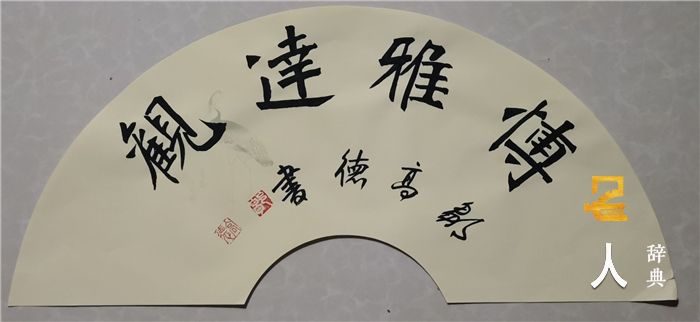 博雅達觀
高德書
名人辞典